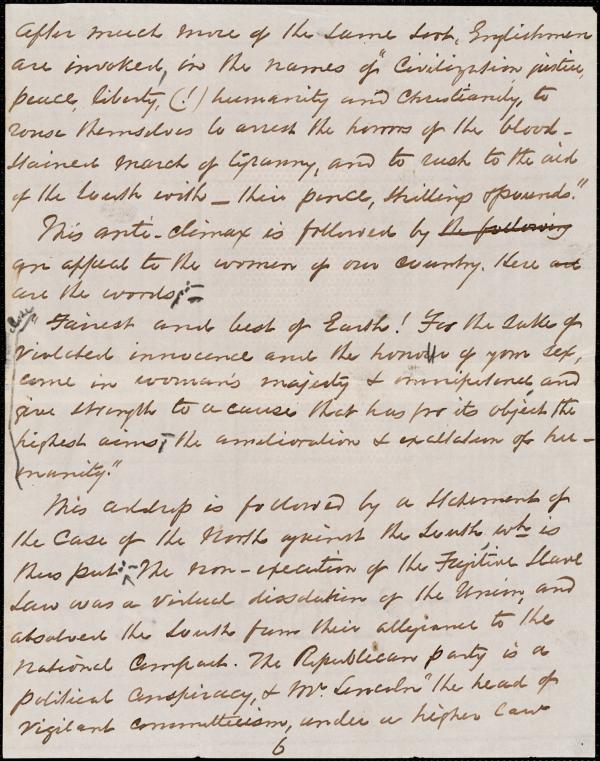 After much more of the same sort, Englishmen
are invoked, in the names of "Civilization justice,
peace, liberty, (!) humanity and Christianity, to
rouse themselves to arrest the horrors of the blood-
stained march of tyranny, and to rush to the aid
of the South with _ their pence, shillings & pounds."
This anti-climax is followed by the following
an appeal to the women of our country. Here and
are the words:—
"Fairest and best of Earth! For the sake of
violated innocence and the honour of your sex,
come in woman's majesty & omnipotence, and
give strength to a cause that has for its object the
highest aims, the amelioration & exaltation of hu-
manity."
This is followed by a statement of
the Case of the North against the South, wh is
thus put:- "The non-execution of the Fugitive Slave
Law was a virtual dissolution of the Union, and
absolved the South from their allegiance to the
National Compact. The Republican party is a
political conspiracy, & Mr. Lincoln "the head of
vigilant committeeism, under a higher law
6